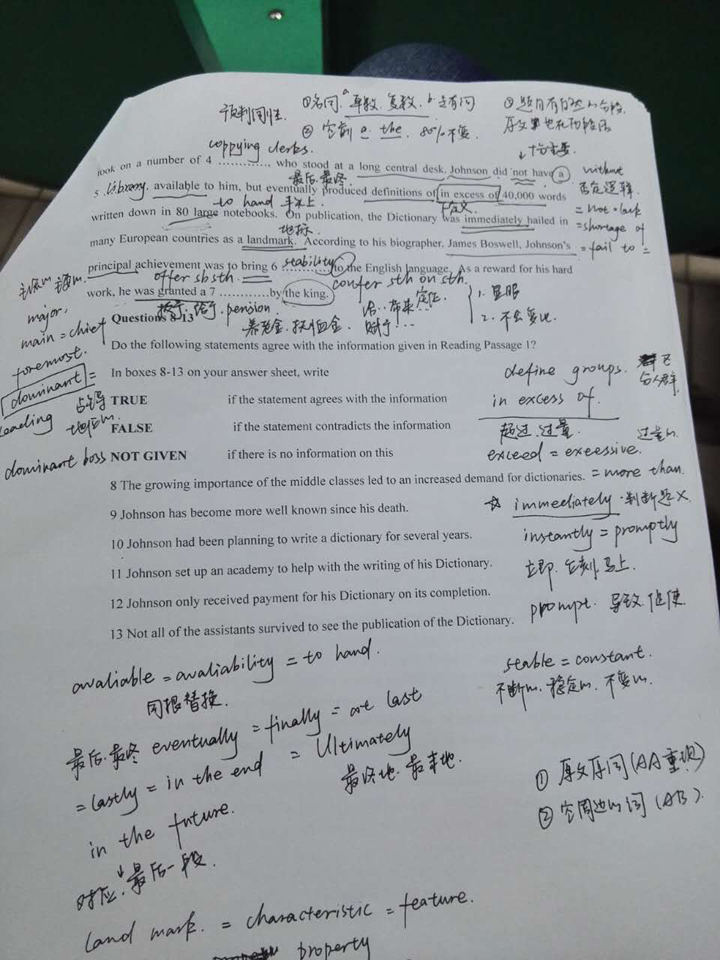 预判词性. ①名词. a 单数. 复数. b 是有词
② 空前 a. the. 80%不变.
copying clerks.
took on a number of 4 ………… who stood at a long central desk. Johnson did not have a
最后.最终
5 library. available to him, but eventually produced definitions of in excess of 40,000 words
to hand
written down in 80 large notebooks. On publication, the Dictionary was immediately hailed in
地标
many European countries as a landmark. According to his biographer, James Boswell, Johnson's
principal achievement was to bring 6 ………… stability to the English language. As a reward for his hard
offer sb sth. confer sth on sth.
work, he was granted a 7 ………… by the king.
pension
without
= not = lack
= shortage of
= fail to =
major,
main = chief
foremost.
dominant =
leading
占
dominant boss
1. 显眼
Questions 8-13
Do the following statements agree with the information given in Reading Passage 1?
In boxes 8-13 on your answer sheet, write
TRUE if the statement agrees with the information
FALSE if the statement contradicts the information
NOT GIVEN if there is no information on this
define groups.
in excess of.
超过.过量.
exceed = exeessive.
= more than.
8 The growing importance of the middle classes led to an increased demand for dictionaries.
9 Johnson has become more well known since his death.
10 Johnson had been planning to write a dictionary for several years.
11 Johnson set up an academy to help with the writing of his Dictionary.
12 Johnson only received payment for his Dictionary on its completion.
13 Not all of the assistants survived to see the publication of the Dictionary.
☆ immediately.判断题
instantly = promptly
立即.立刻.马上.
prompt. 导致.促使.
stable = constant.
不断的.稳定的.不变的.
avaliable = avaliability = to hand.
同根替换.
最后.最终 eventually = finally = at last
= lastly = in the end = Ultimately
最终地.最末地.
in the future.
对应 最后一段.
① 原文原词(AA重现)
② 空周边的词(AB).
Land mark. = characteristic = feature.
property